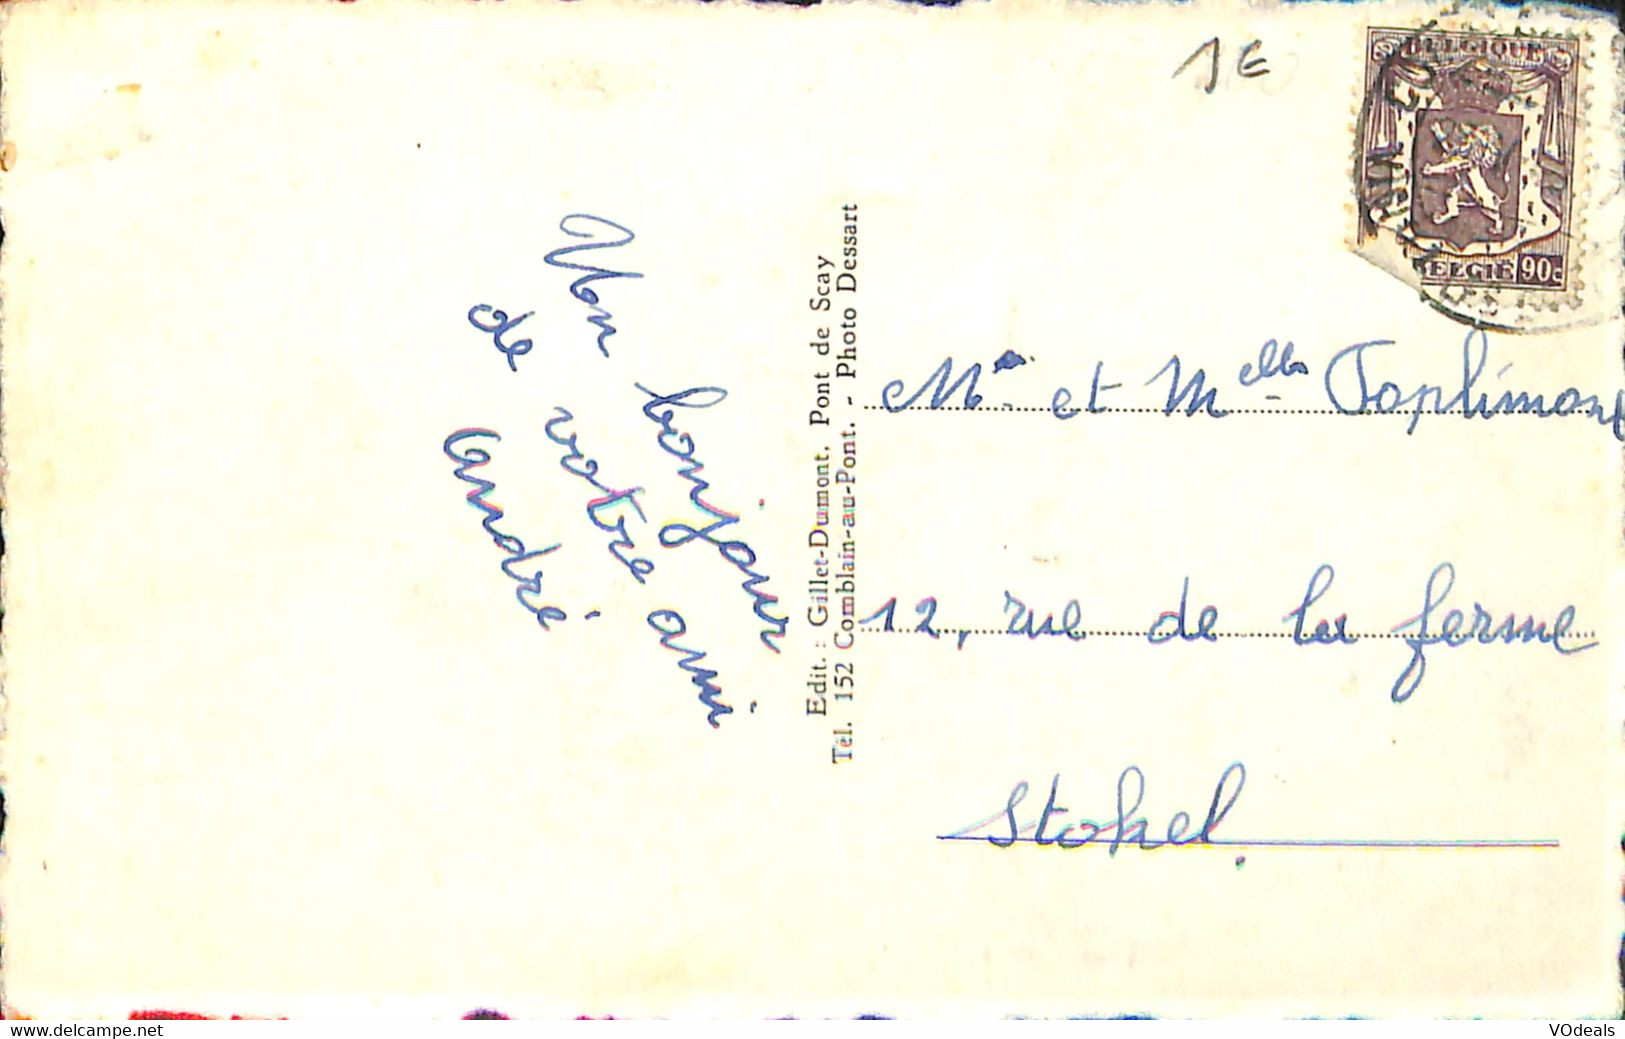 1 €
BELGIQUE
BELGIE 90c
Un bonjour
de votre ami
André
Edit. : Gillet-Dumont, Pont de Scay
Tél. 152 Comblain-au-Pont. - Photo Dessart
et Melles Joplimont
12, rue de la ferme
Stokel.
www.delcampe.net
VOdeals